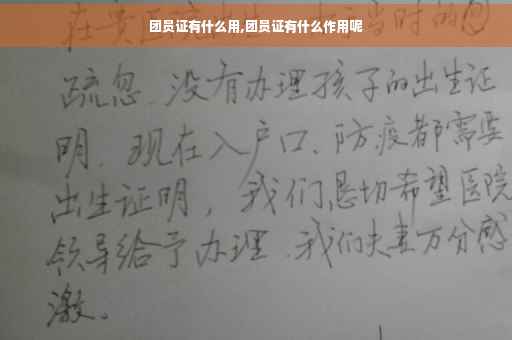 团员证有什么用,团员证有什么作用呢
在贵医院出生 当时的
疏忽、没有办理孩子的出生证
明、现在入户口、防疫都需要
出生证明，我们恳切希望医院
领导给予办理、我们夫妻万分感
激。